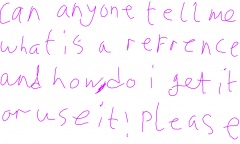 can anyone tell me
what is a refrence
and how do i get it
or use it! please